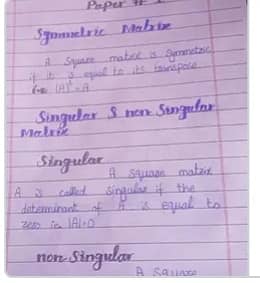 Paper # 1
Symmetric Matrix
A Square matrix is Symmetric
if it is equal to its transpose
i.e (A)ᵗ = A
Singular & non Singular
Matrix
Singular
A Square matrix
A is called Singular if the
determinant of A is equal to
zero ie |A|=0
non Singular
A Square